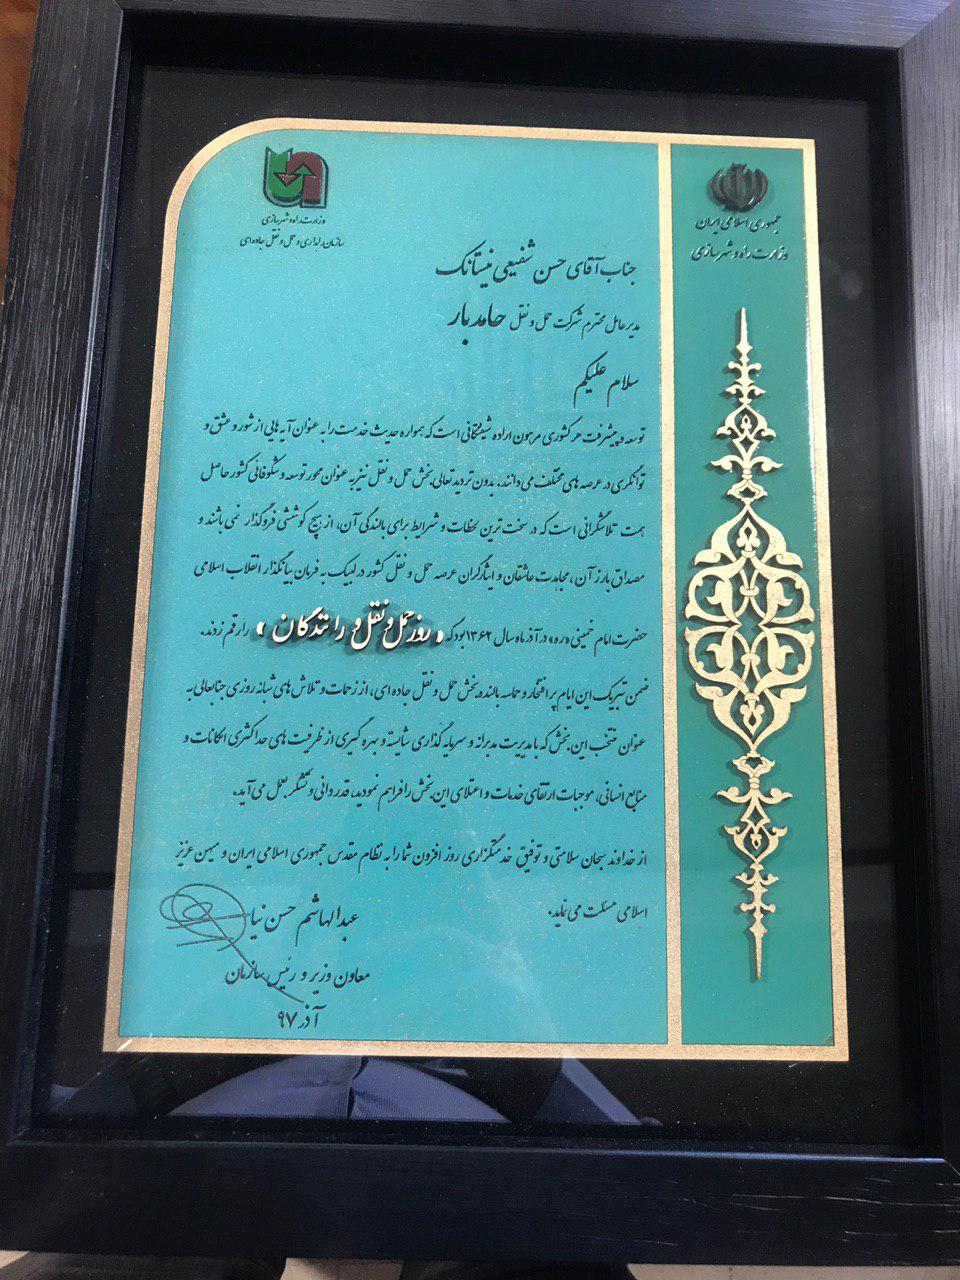 جمهوری اسلامی ایران
وزارت راه و شهرسازی
وزارت راه و شهرسازی
سازمان راهداری و حمل و نقل جاده ای
جناب آقای حسن شفیعی نیستانک
مدیر عامل محترم شرکت حمل و نقل حامد بار
سلام علیکم
توسعه و پیشرفت هر کشوری مرهون اراده شیفتگانی است که همواره حدیث خدمت را به عنوان آیه هایی از شور و عشق و
توانگری در عرصه های مختلف می دانند. بدون تردید تعالی بخش حمل و نقل نیز به عنوان محور توسعه و شکوفائی کشور حاصل
همت تلاشگرانی است که در سخت ترین لحظات و شرایط برای بالندگی آن، از هیچ کوششی فروگذار نمی باشند و
مصداق بارز آن، مجاهدت عاشقان و ایثارگران عرصه حمل و نقل کشور در لبیک به فرمان بنیانگذار انقلاب اسلامی
حضرت امام خمینی «ره» در آذر ماه سال ۱۳۶۲ بود که «روز حمل و نقل و رانندگان» را رقم زدند.
ضمن تبریک این ایام پر افتخار و حماسه بالنده بخش حمل و نقل جاده ای، از زحمات و تلاش های شبانه روزی جنابعالی به
عنوان منتخب این بخش که با مدیریت مدبرانه و سرمایه گذاری شایسته و بهره گیری از ظرفیت های حداکثری امکانات و
منابع انسانی، موجبات ارتقای خدمات و اعتلای این بخش را فراهم نمودید، قدردانی و تشکر بعمل می آید.
از خداوند سبحان سلامتی و توفیق خدمتگزاری روز افزون شما را به نظام مقدس جمهوری اسلامی ایران و میهن عزیز
اسلامی مسئلت می نماید.
عبدالهاشم حسن نیا
معاون وزیر و رئیس سازمان
آذر ۹۷